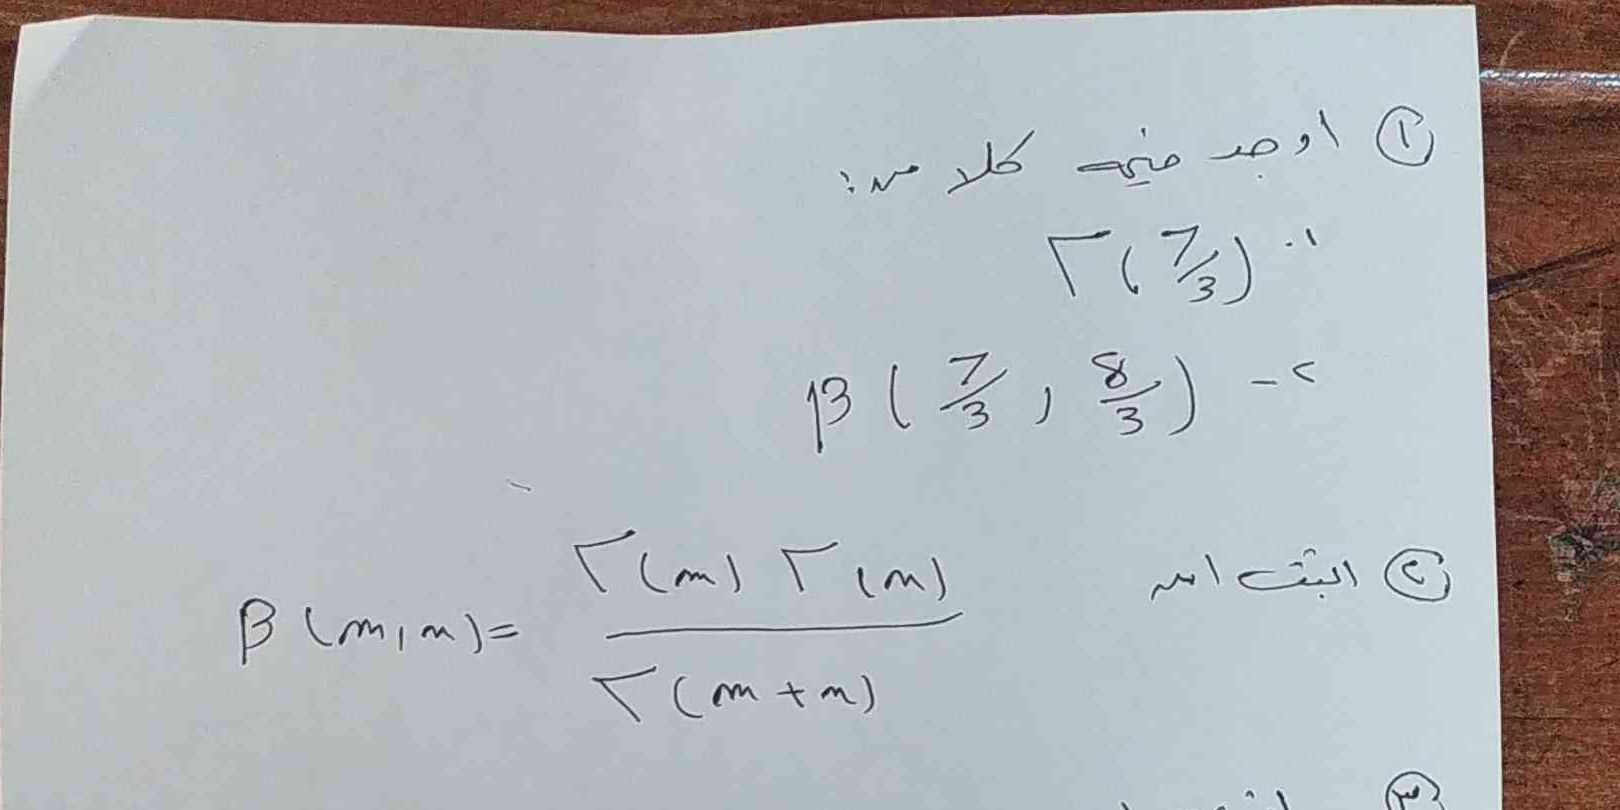 ① اوجد قيمة كلا من:
١- Γ(7/3)
٢- β(7/3, 8/3)
② اثبت ان β(m,n)= Γ(m) Γ(n) / Γ(m+n)
③